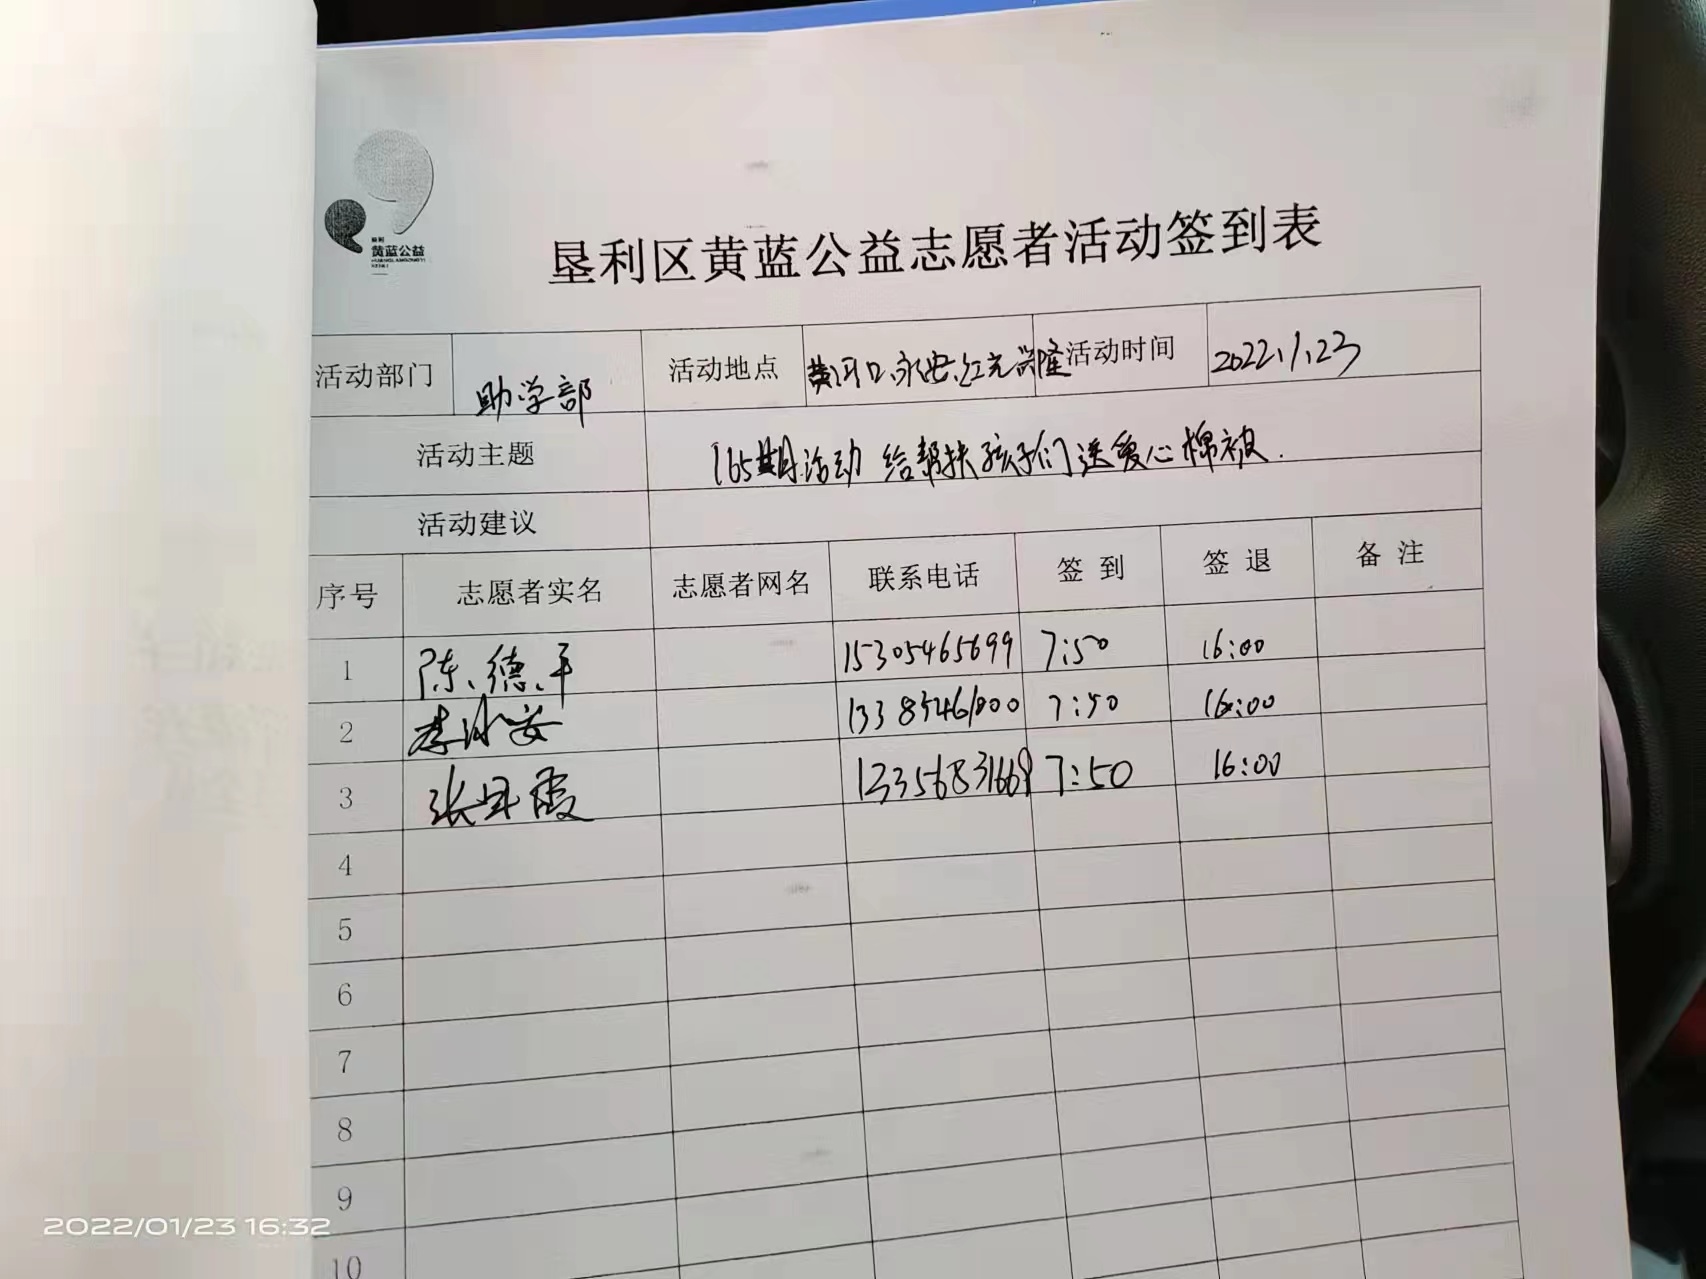 垦利
黄蓝公益
垦利区黄蓝公益志愿者活动签到表
活动部门 助学部 活动地点 黄河口、永安、红光、兴隆 活动时间 2022.1.23
活动主题 165期活动 给帮扶孩子们送爱心棉被.
活动建议
序号 志愿者实名 志愿者网名 联系电话 签到 签退 备注
1 陈、德、平 15305465699 7:50 16:00
2 李 安 13385461000 7:50 16:00
3 张 霞 13356831669 7:50 16:00
4
5
6
7
8
9
10
2022/01/23 16:32